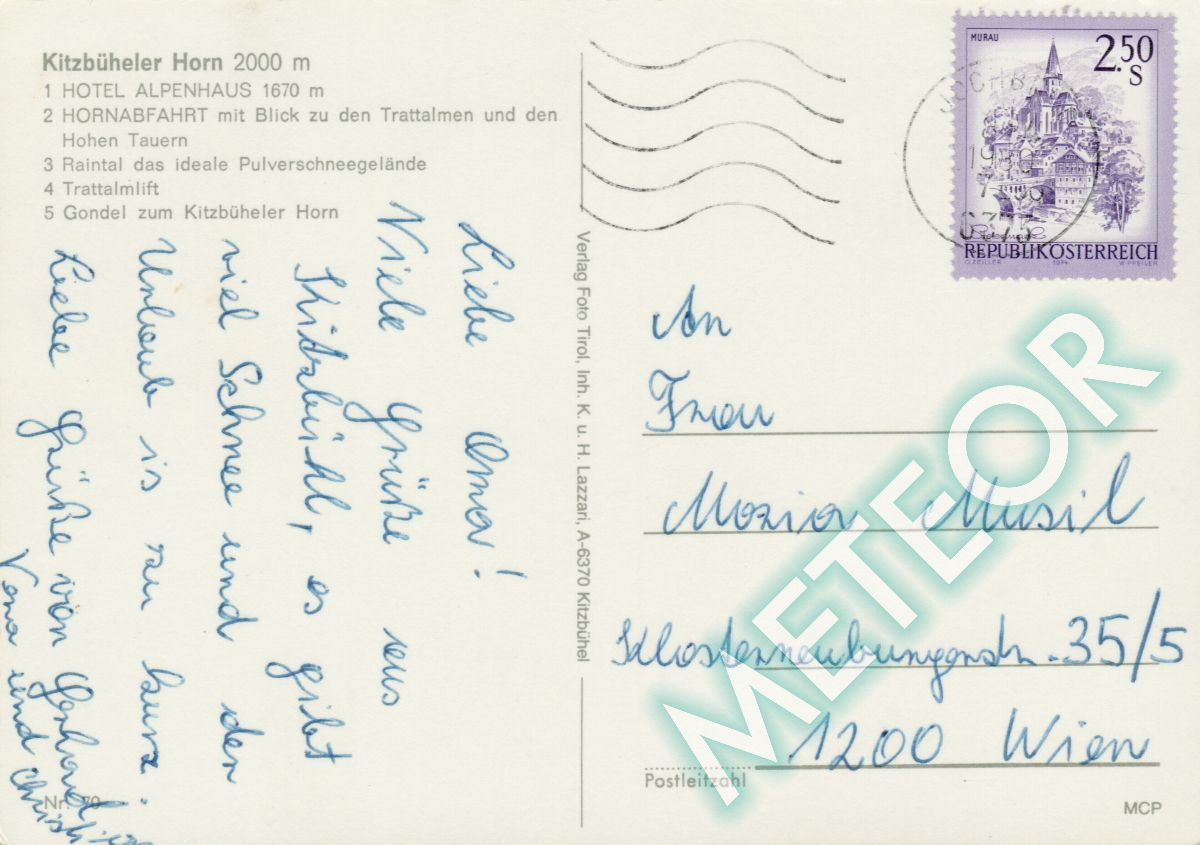 Kitzbüheler Horn 2000 m
1 HOTEL ALPENHAUS 1670 m
2 HORNABFAHRT mit Blick zu den Trattalmen und den
Hohen Tauern
3 Raintal das ideale Pulverschneegelände
4 Trattalmlift
5 Gondel zum Kitzbüheler Horn
Liebe Oma!
Viele Grüße aus
Kitzbühl, es gibt
viel Schnee und der
Urlaub is zu kurz.
Liebe Grüße von Gerhard
und
Nr. 70
Verlag Foto Tirol, Inh. K. u. H. Lazzari, A-6370 Kitzbühel
MURAU
2.50
S
REPUBLIK ÖSTERREICH
O. ZEILER 1974 W. PFEILER
JOCHB
6373
An
Frau
Maria Musil
Klosterneuburgerstr. 35/5
1200 Wien
Postleitzahl
MCP
METEOR